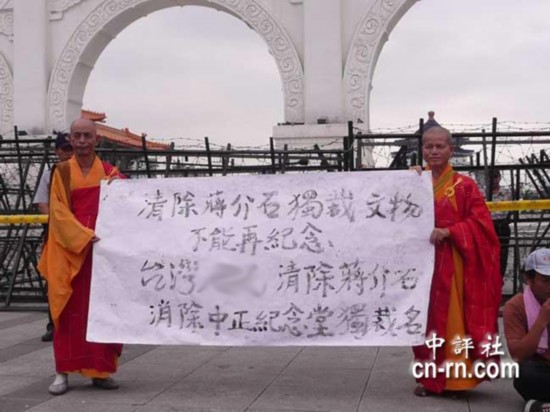 清除蔣介石獨裁文物
不能再紀念、
台灣 清除蔣介石
消除中正紀念堂獨裁名
中評社
cn-rn.com